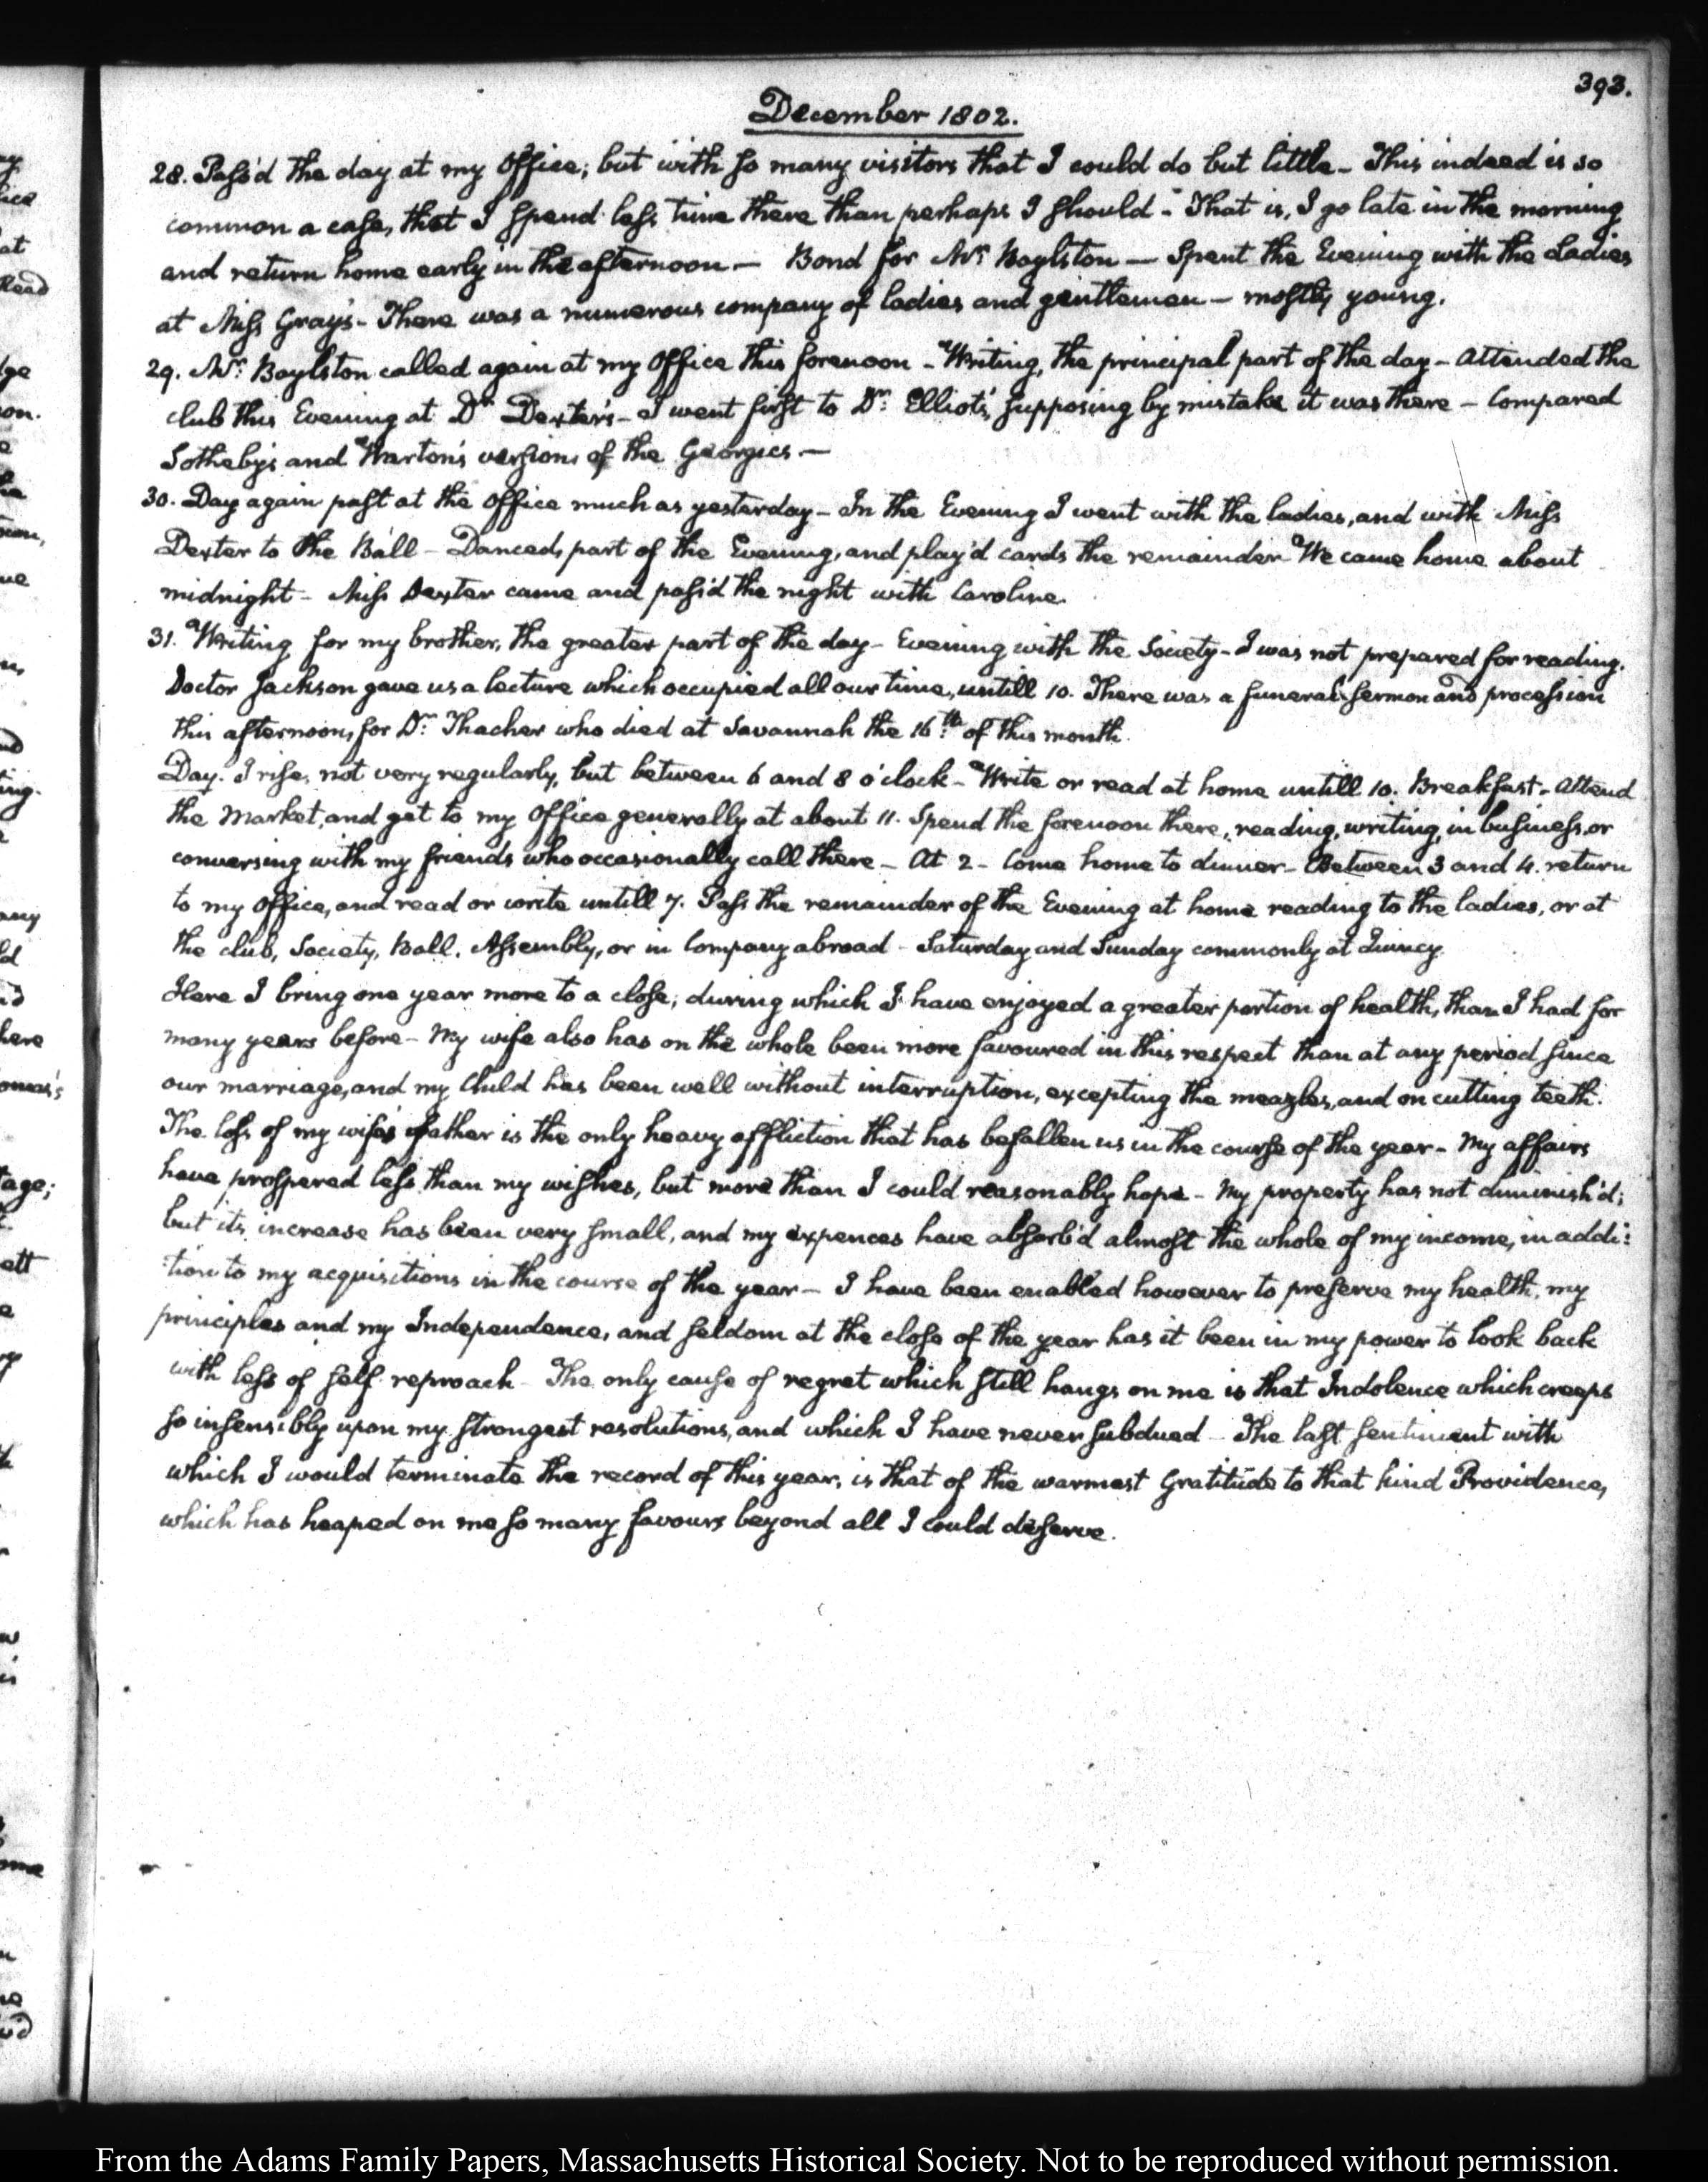 393.
December 1802.
28. Pass'd the day at my Office; but with so many visitors that I could do but little - This indeed is so
common a case, that I spend less time there than perhaps I should - That is, I go late in the morning
and return home early in the afternoon — Bond for Mr: Boylston — Spent the Evening with the Ladies
at Miss Gray's - There was a numerous company of ladies and gentlemen — mostly young.
29. Mr: Boylston called again at my Office this forenoon - Writing, the principal part of the day - Attended the
club this Evening at Dr: Dexter's - I went first to Dr: Elliot's, supposing by mistake it was there - Compared
Sotheby's and Warton's versions of the Georgics. —
30. Day again past at the Office much as yesterday - In the Evening I went with the ladies, and with Miss
Dexter to the Ball - Danced, part of the Evening, and play'd cards the remainder - We came home about
midnight - Miss Dexter came and pass'd the night with Caroline.
31. Writing for my brother, the greater part of the day - Evening with the Society - I was not prepared for reading.
Doctor Jackson gave us a lecture which occupied all our time, untill 10. There was a funeral sermon and procession
this afternoon, for Dr: Thacher who died at Savannah the 16th: of this month.
Day. I rise, not very regularly, but between 6 and 8 o'clock - Write or read at home untill 10. Breakfast - Attend
the Market, and get to my Office generally at about 11. Spend the forenoon there, reading, writing, in business, or
conversing with my friends who occasionally call there - At 2 - Come home to dinner - Between 3 and 4. return
to my Office, and read or write untill 7. Pass the remainder of the Evening at home reading to the ladies, or at
the club, Society, Ball, Assembly, or in Company abroad - Saturday and Sunday commonly at Quincy.
Here I bring one year more to a close; during which I have enjoyed a greater portion of health, than I had for
many years before - My wife also has on the whole been more favoured in this respect than at any period since
our marriage, and my Child has been well without interruption, excepting the meazles, and on cutting teeth.
The loss of my wife's father is the only heavy affliction that has befallen us in the course of the year - My affairs
have prospered less than my wishes, but more than I could reasonably hope - My property has not diminish'd;
but its increase has been very small, and my expences have absorb'd almost the whole of my income, in addi:
:tion to my acquisitions in the course of the year - I have been enabled however to preserve my health, my
principles and my Independence, and seldom at the close of the year has it been in my power to look back
with less of self reproach - The only cause of regret which still hangs on me is that Indolence which creeps
so insensibly upon my strongest resolutions, and which I have never subdued - The last sentiment with
which I would terminate the record of this year, is that of the warmest Gratitude to that kind Providence,
which has heaped on me so many favours beyond all I could deserve.
From the Adams Family Papers, Massachusetts Historical Society. Not to be reproduced without permission.